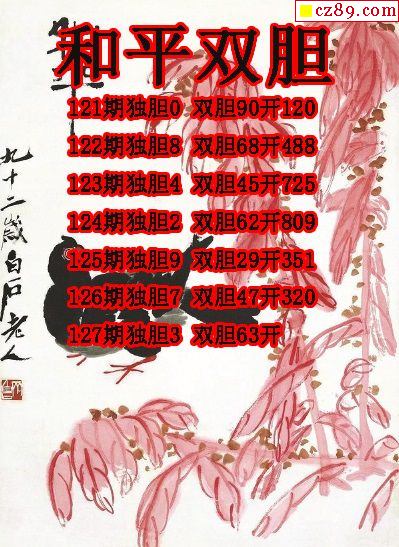 cz89.com
和平双胆
121期独胆0 双胆90开120
122期独胆8 双胆68开488
123期独胆4 双胆45开725
124期独胆2 双胆62开809
125期独胆9 双胆29开351
126期独胆7 双胆47开320
127期独胆3 双胆63开
九十二岁白石老人